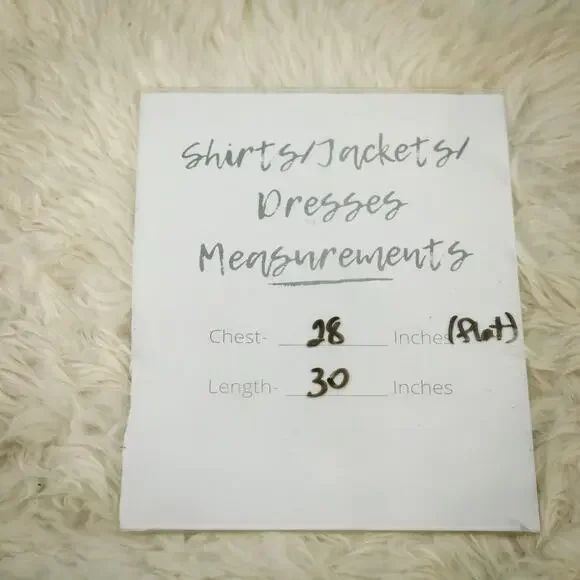 Shirts/Jackets/
Dresses
Measurements
Chest- 28 Inches (flat)
Length- 30 Inches